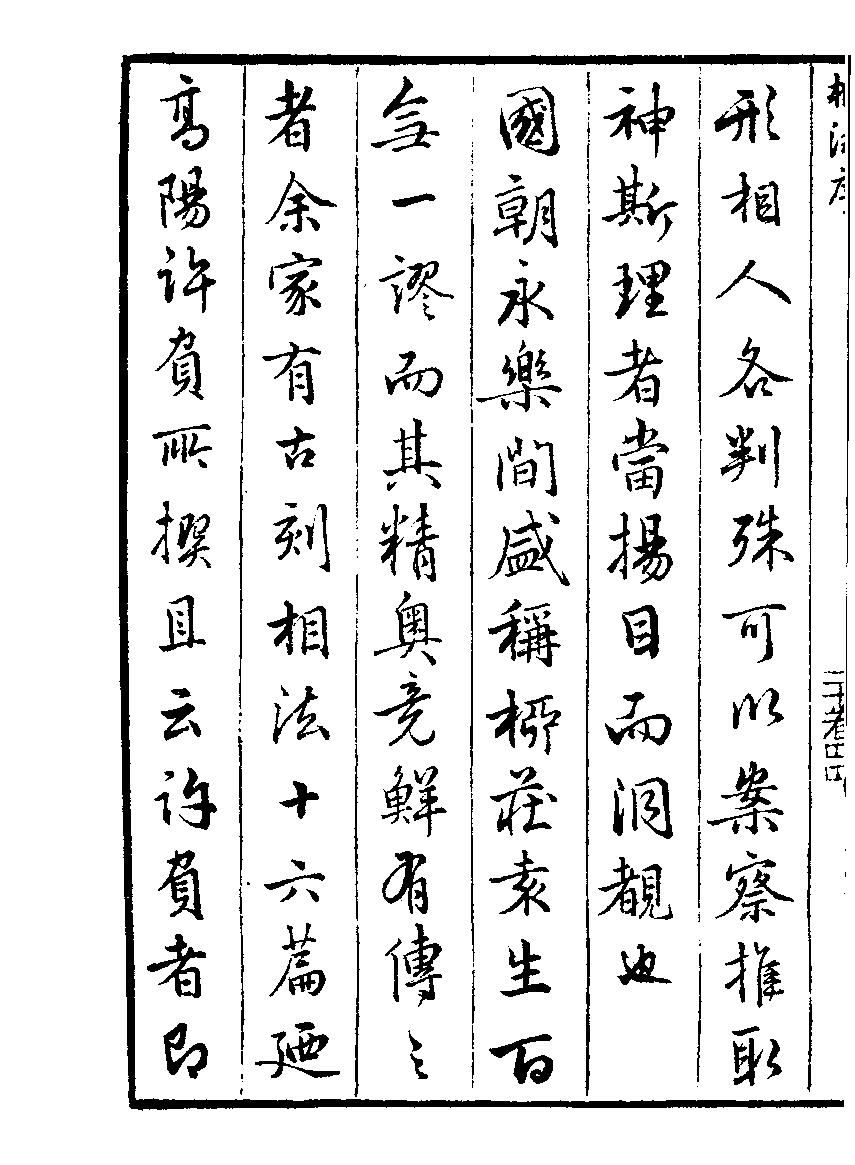 相法序
形相人各判殊可以案察推取
神斯理者當揚目而洞覩也
國朝永樂間盛稱栁莊袁生百
無一謬而其精奧竟鮮有傳之
者余家有古刻相法十六篇廼
高陽許負所撰且云許負者即